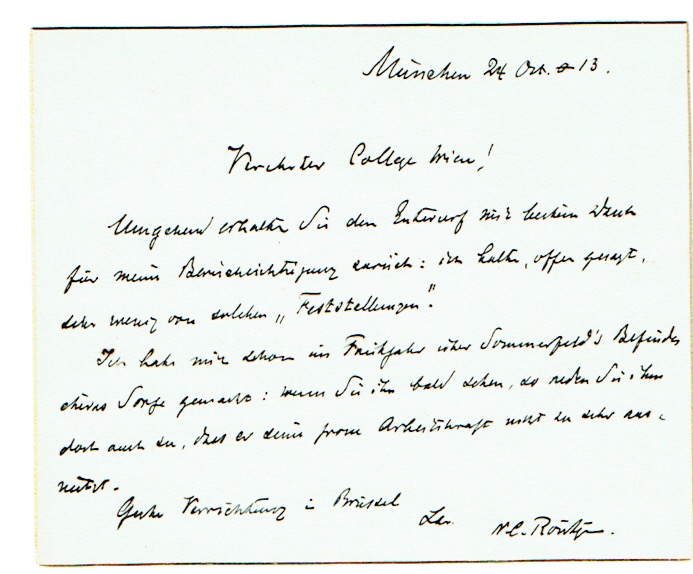 München 24 Oct. 13.
Verehrter College Wien!
Umgehend erhalten Sie den Entwurf mit bestem Dank
für meine Berücksichtigung zurück: ich halte, offen gesagt,
sehr wenig von solchen „Feststellungen".
Ich habe mir schon im Frühjahr über Sommerfeld's Befinden
etwas Sorge gemacht: wenn Sie ihn bald sehen, so reden Sie ihm
doch auch zu, dass er seine Arbeitskraft nicht zu sehr aus-
nützt.
Gute Verrichtung in Brüssel
W.C. Röntgen.